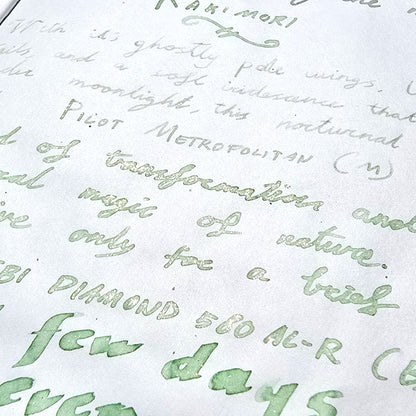 KAKIMORI
With its ghostly pale wings,
and a soft iridescence that
moonlight, this nocturnal
PILOT METROPOLITAN (M)
of transformation and
magic of nature.
only for a brief
DIAMOND 580 AL-R (B
few days